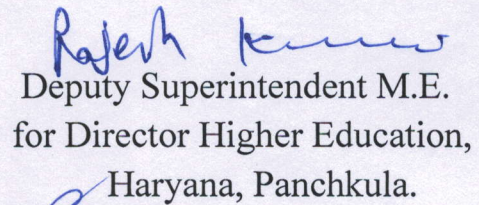 Rajesh Kumar
Deputy Superintendent M.E.
for Director Higher Education,
Haryana, Panchkula.